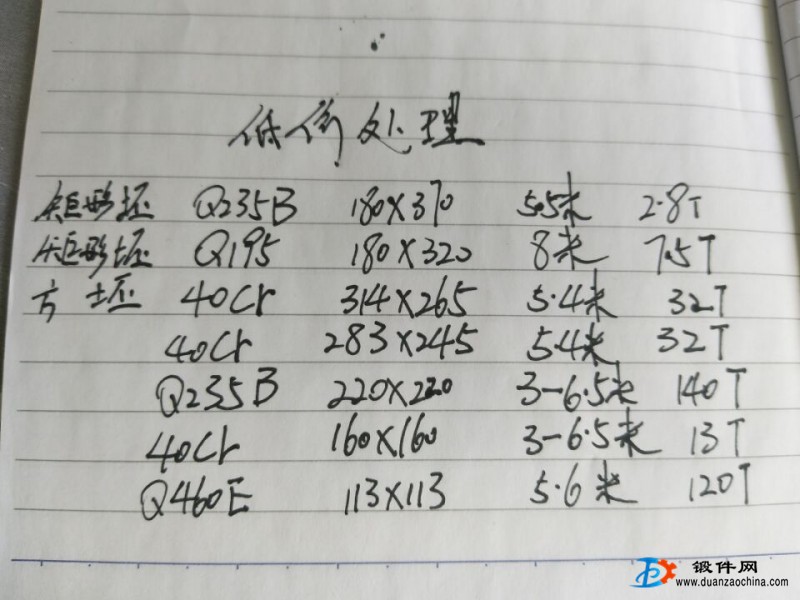 低价处理
矩形坯 Q235B 180X370 5.5米 2.8T
矩形坯 Q195 180X320 8米 7.5T
方坯 40Cr 314X265 5.4米 32T
40Cr 283X245 5.4米 32T
Q235B 220X220 3-6.5米 140T
40Cr 160X160 3-6.5米 13T
Q460E 113X113 5.6米 120T
锻件网
www.duanzaochina.com